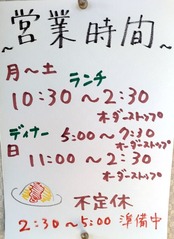 ~営業時間~
月～土 ランチ
10:30～2:30
オーダーストップ
ディナー 5:00～7:30
オーダーストップ
日 11:00～2:30
オーダーストップ
不定休
2:30～5:00 準備中